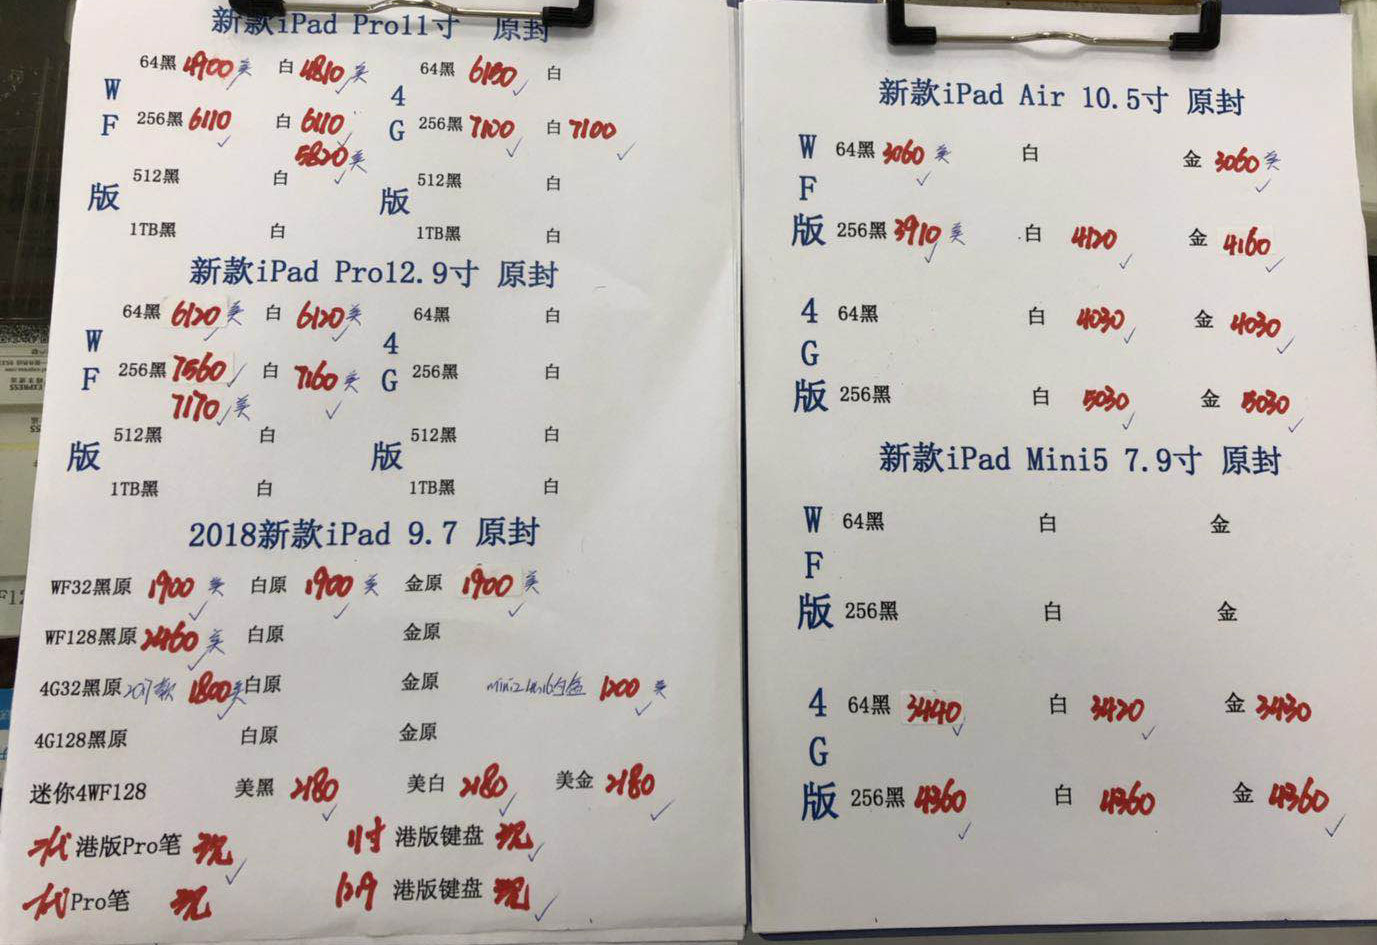 新款iPad Pro11寸 原封
WF版
64黑 4900美 白 4810美
256黑 6110 白 6110
5820美
512黑 白
1TB黑 白
4G版
64黑 6180 白
256黑 7100 白 7100
512黑 白
1TB黑 白
新款iPad Pro12.9寸 原封
WF版
64黑 6120美 白 6120美
256黑 7560 白 7160美
7170美
512黑 白
1TB黑 白
4G版
64黑 白
256黑 白
512黑 白
1TB黑 白
2018新款iPad 9.7 原封
WF32黑原 1900美 白原 1900美 金原 1900美
WF128黑原 2460美 白原 金原
4G32黑原 2017款 1800美 白原 金原 mini2 1200美
4G128黑原 白原 金原
迷你4WF128 美黑 2180 美白 2180 美金 2180
二代 港版Pro笔 现 11寸 港版键盘 现
一代 Pro笔 现 12.9 港版键盘 现
新款iPad Air 10.5寸 原封
WF版
64黑 3060美 白 金 3060美
256黑 3910美 白 4120 金 4160
4G版
64黑 白 4030 金 4030
256黑 白 5030 金 5030
新款iPad Mini5 7.9寸 原封
WF版
64黑 白 金
256黑 白 金
4G版
64黑 3440 白 3420 金 3430
256黑 4360 白 4360 金 4360